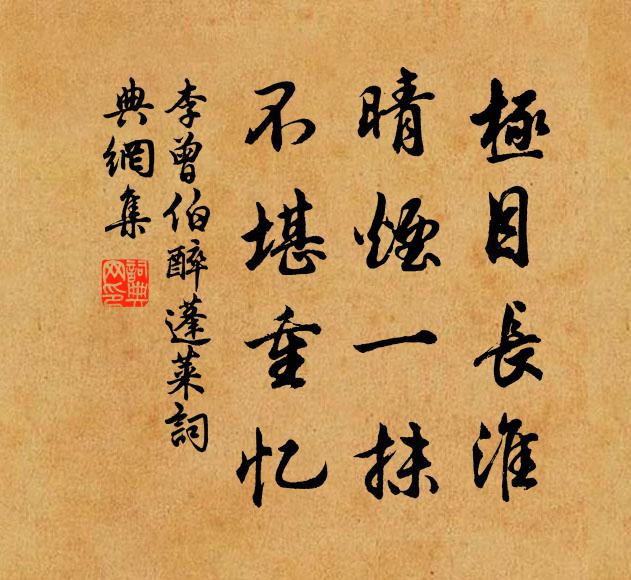 極目長淮
晴煙一抹
不堪重忆
李曾伯醉蓬萊詞
典網集
詞典
网印